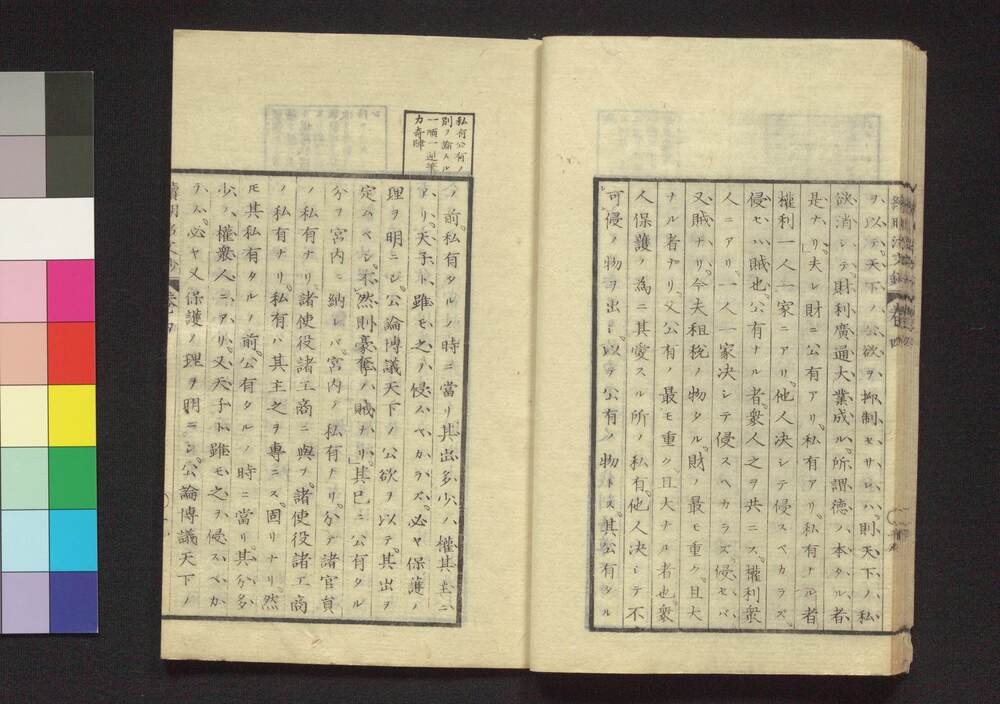 ヲ以テ天下ノ公欲ヲ抑制セサレハ則天下ノ私
欲消シテ財利廣通大業成ル所謂德ハ本タル者
是ナリ」夫レ財ニ公有アリ私有アリ私有ナル者
權利一人一家ニアリ他人決シテ侵スベカラズ
侵セハ賊也公有ナル者衆人之ヲ共ニス權利衆
人ニアリ一人一家決シテ侵スヘカラズ侵セバ
又賊ナリ今夫租税ノ物タル財ノ最モ重ク且大
ナル者ナリ又公有ノ最モ重ク且大ナル者也衆
人保護ノ為ニ其愛スル所ノ私有他人決シテ不
可侵ノ物ヲ出シ以テ公有ノ物トス其公有タル
私有公有ノ
別ヲ論スル
一順一逆筆
力奇肆
ノ前私有タルノ時ニ當リ其出多少ハ權其主ニ
アリ天子ト雖モ之ヲ侵スベカラズ必ヤ保護ノ
理ヲ明ニシ公論博議天下ノ公欲ヲ以テ其出ヲ
定ムベシ不然則豪奪ハ賊ナリ」其已ニ公有タル
分ヲ宮内ニ納レバ宮内ノ私有ナリ分テ諸官員
ノ私有ナリ諸使役諸工商ニ與ヲ諸使役諸工商
ノ私有ナリ私有ハ其主之ヲ專ニス固リナリ然
モ其私有タルノ前公有タルノ時ニ當リ其分多
少ハ權衆人ニアリ又天子ト雖モ之ヲ侵スベカ
ラズ必ヤ又保護ノ理ヲ明ニシ公論博議天下ノ
卷ノ四